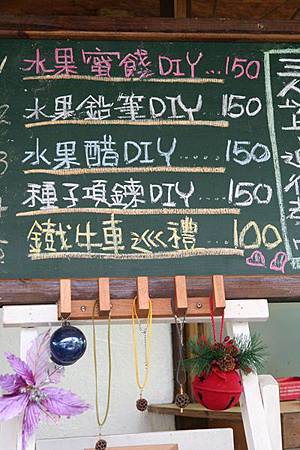 水果蜜餞DIY...150
水果鉛筆DIY 150
水果醋DIY...150
種子項鍊DIY...150
鐵牛車巡禮...100